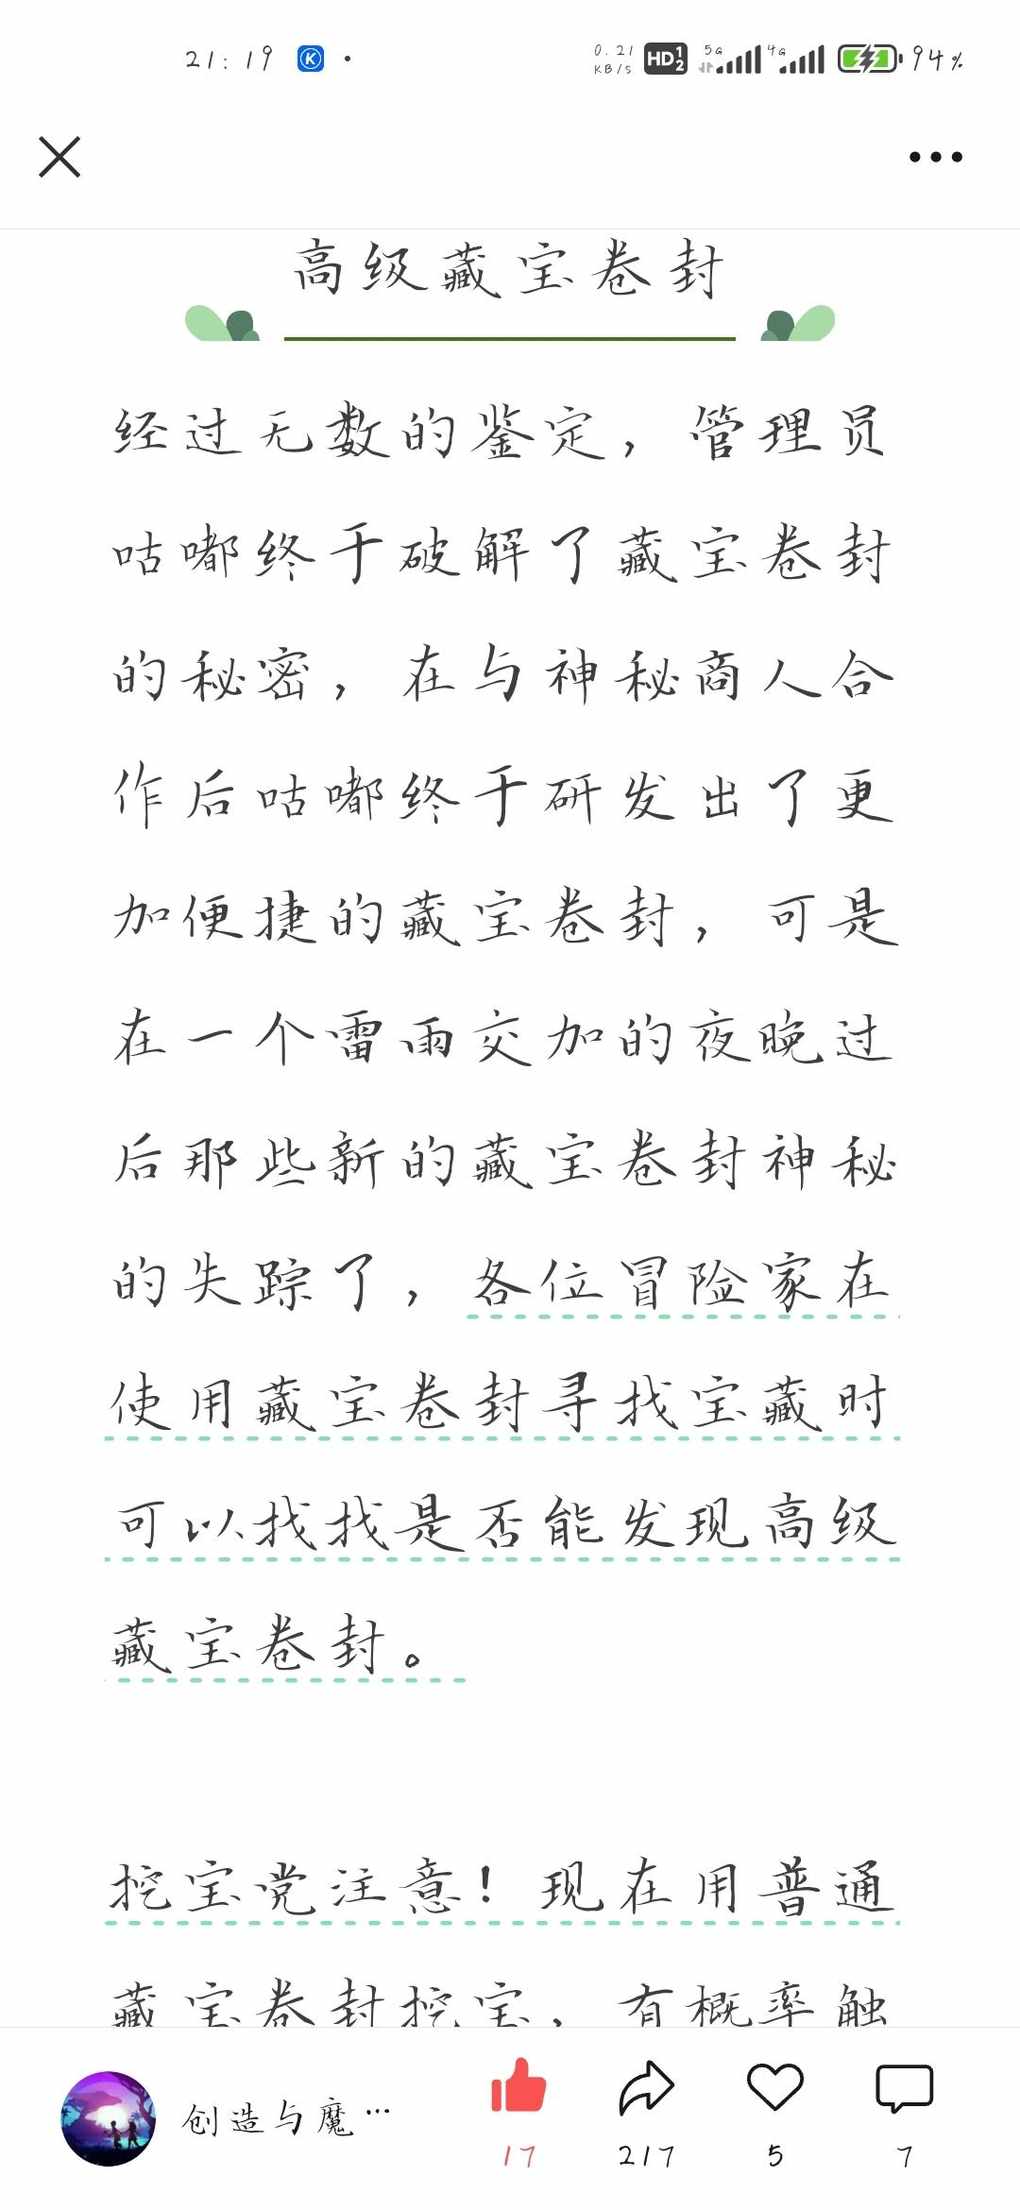 21:19
0.21 KB/S HD 1 2 5G 4G 94%
高级藏宝卷封
经过无数的鉴定，管理员
咕嘟终于破解了藏宝卷封
的秘密，在与神秘商人合
作后咕嘟终于研发出了更
加便捷的藏宝卷封，可是
在一个雷雨交加的夜晚过
后那些新的藏宝卷封神秘
的失踪了，各位冒险家在
使用藏宝卷封寻找宝藏时
可以找找是否能发现高级
藏宝卷封。
挖宝党注意！现在用普通
藏宝卷封挖宝，有概率触
创造与魔…
17 217 5 7